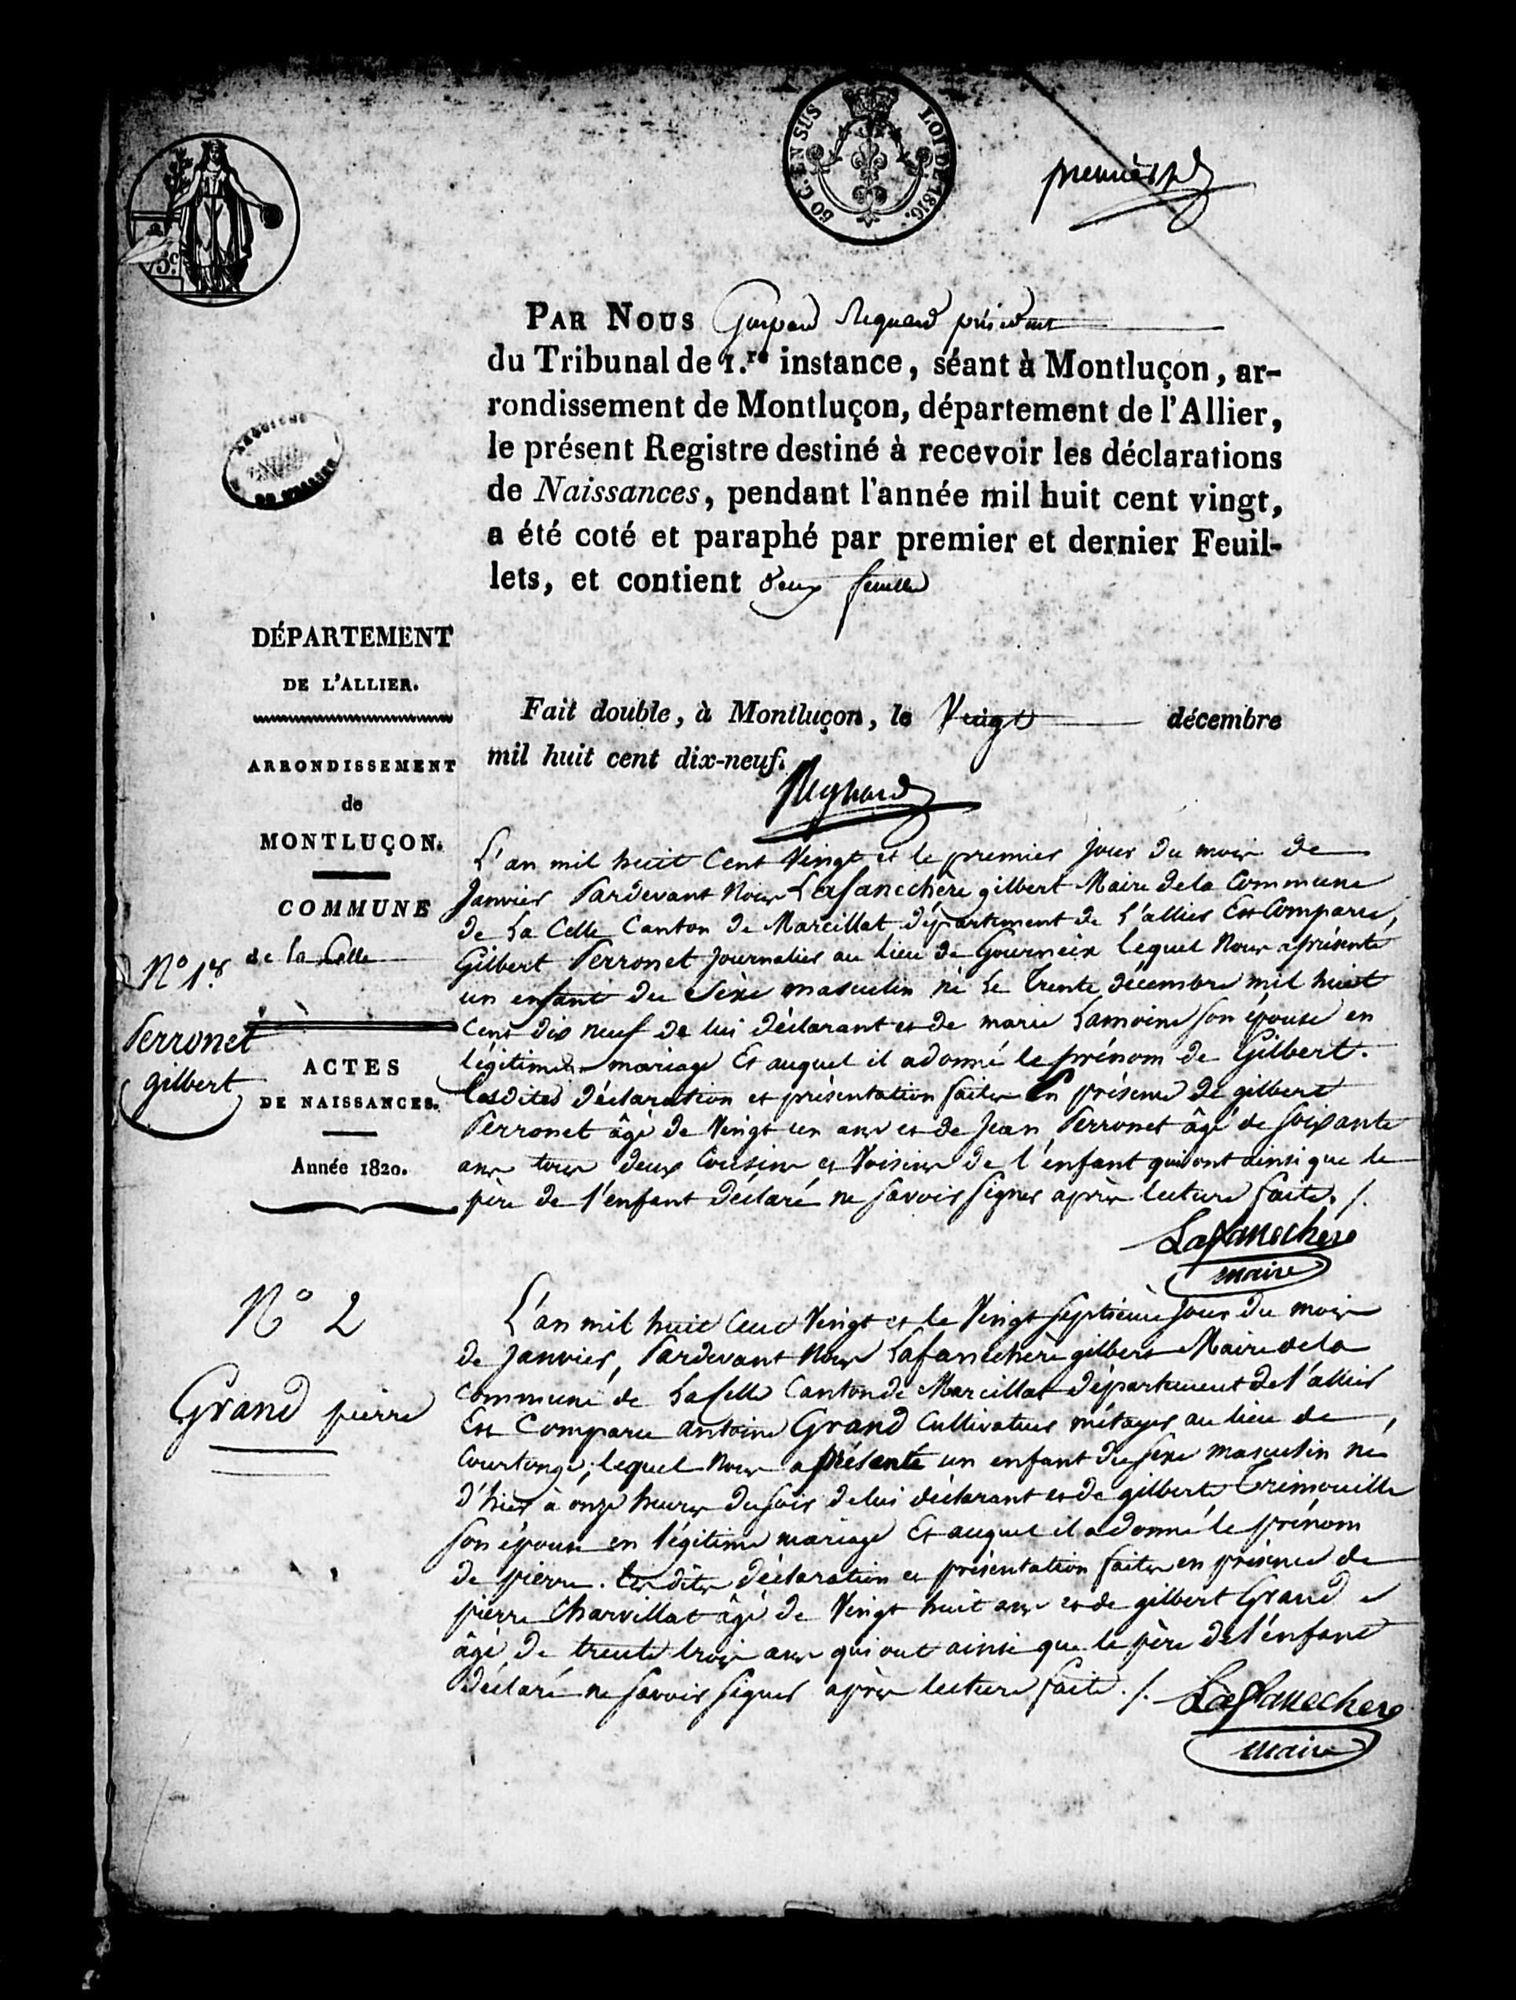 50 C. EN SUS
LOI DE 1816.
75 c
ARCHIVES
DE L'ALLIER
PAR NOUS Gaspard Regnard président
du Tribunal de 1.re instance, séant à Montluçon, ar-
rondissement de Montluçon, département de l'Allier,
le présent Registre destiné à recevoir les déclarations
de Naissances, pendant l'année mil huit cent vingt,
a été coté et paraphé par premier et dernier Feuil-
lets, et contient deux feuilles
Fait double, à Montluçon, le Vingt décembre
mil huit cent dix-neuf.
Regnard
DÉPARTEMENT
DE L'ALLIER.
ARRONDISSEMENT
de
MONTLUÇON.
COMMUNE
de la Celle
ACTES
DE NAISSANCES.
Année 1820.
N° 1er
Perronet
gilbert
L'an mil huit Cent Vingt et le premier jour du mois de
Janvier Pardevant Nous Lafanechère gilbert Maire de la Commune
de La Celle Canton de Marcillat département de L'allier Est Comparu,
Gilbert Perronet journalier au lieu de Gourneix lequel Nous a présenté
un enfant du Sèxe masculin né Le Trente décembre mil huit
Cent dix neuf de lui déclarant et de marie Lamoine Son épouse en
légitime mariage Et auquel il a donné le prénom de Gilbert.
Lesdites déclaration et présentation faites En présence de gilbert
Perronet âgé de Vingt un ans et de Jean Perronet âgé de soixante
ans tous deux Cousins et Voisins de l'enfant qui ont ainsi que le
père de l'enfant déclaré ne savoir signer après lecture faite. /.
Lafanechère
maire
N° 2
Grand pierre
L'an mil huit Cent Vingt et le Vingt Septième Jour du mois
de Janvier, Pardevant Nous Lafanechère gilbert Maire de la
Commune de La Celle Canton de Marcillat département de l'allier
Est Comparu antoine Grand Cultivateur métayer au lieu de
Courtonge, lequel Nous a présenté un enfant du Sèxe masculin né
d'hier à onze heures du soir de lui déclarant et de gilberte Trimouille
son épouse en légitime mariage Et auquel il a donné le prénom
de pierre. Lesdites déclaration et présentation faites en présence de
pierre Charvillat âgé de Vingt huit ans et de gilbert Grand
âgé de trente trois ans qui ont ainsi que le père de l'enfant
déclaré ne savoir signer après lecture faite. /.
Lafanechère
maire